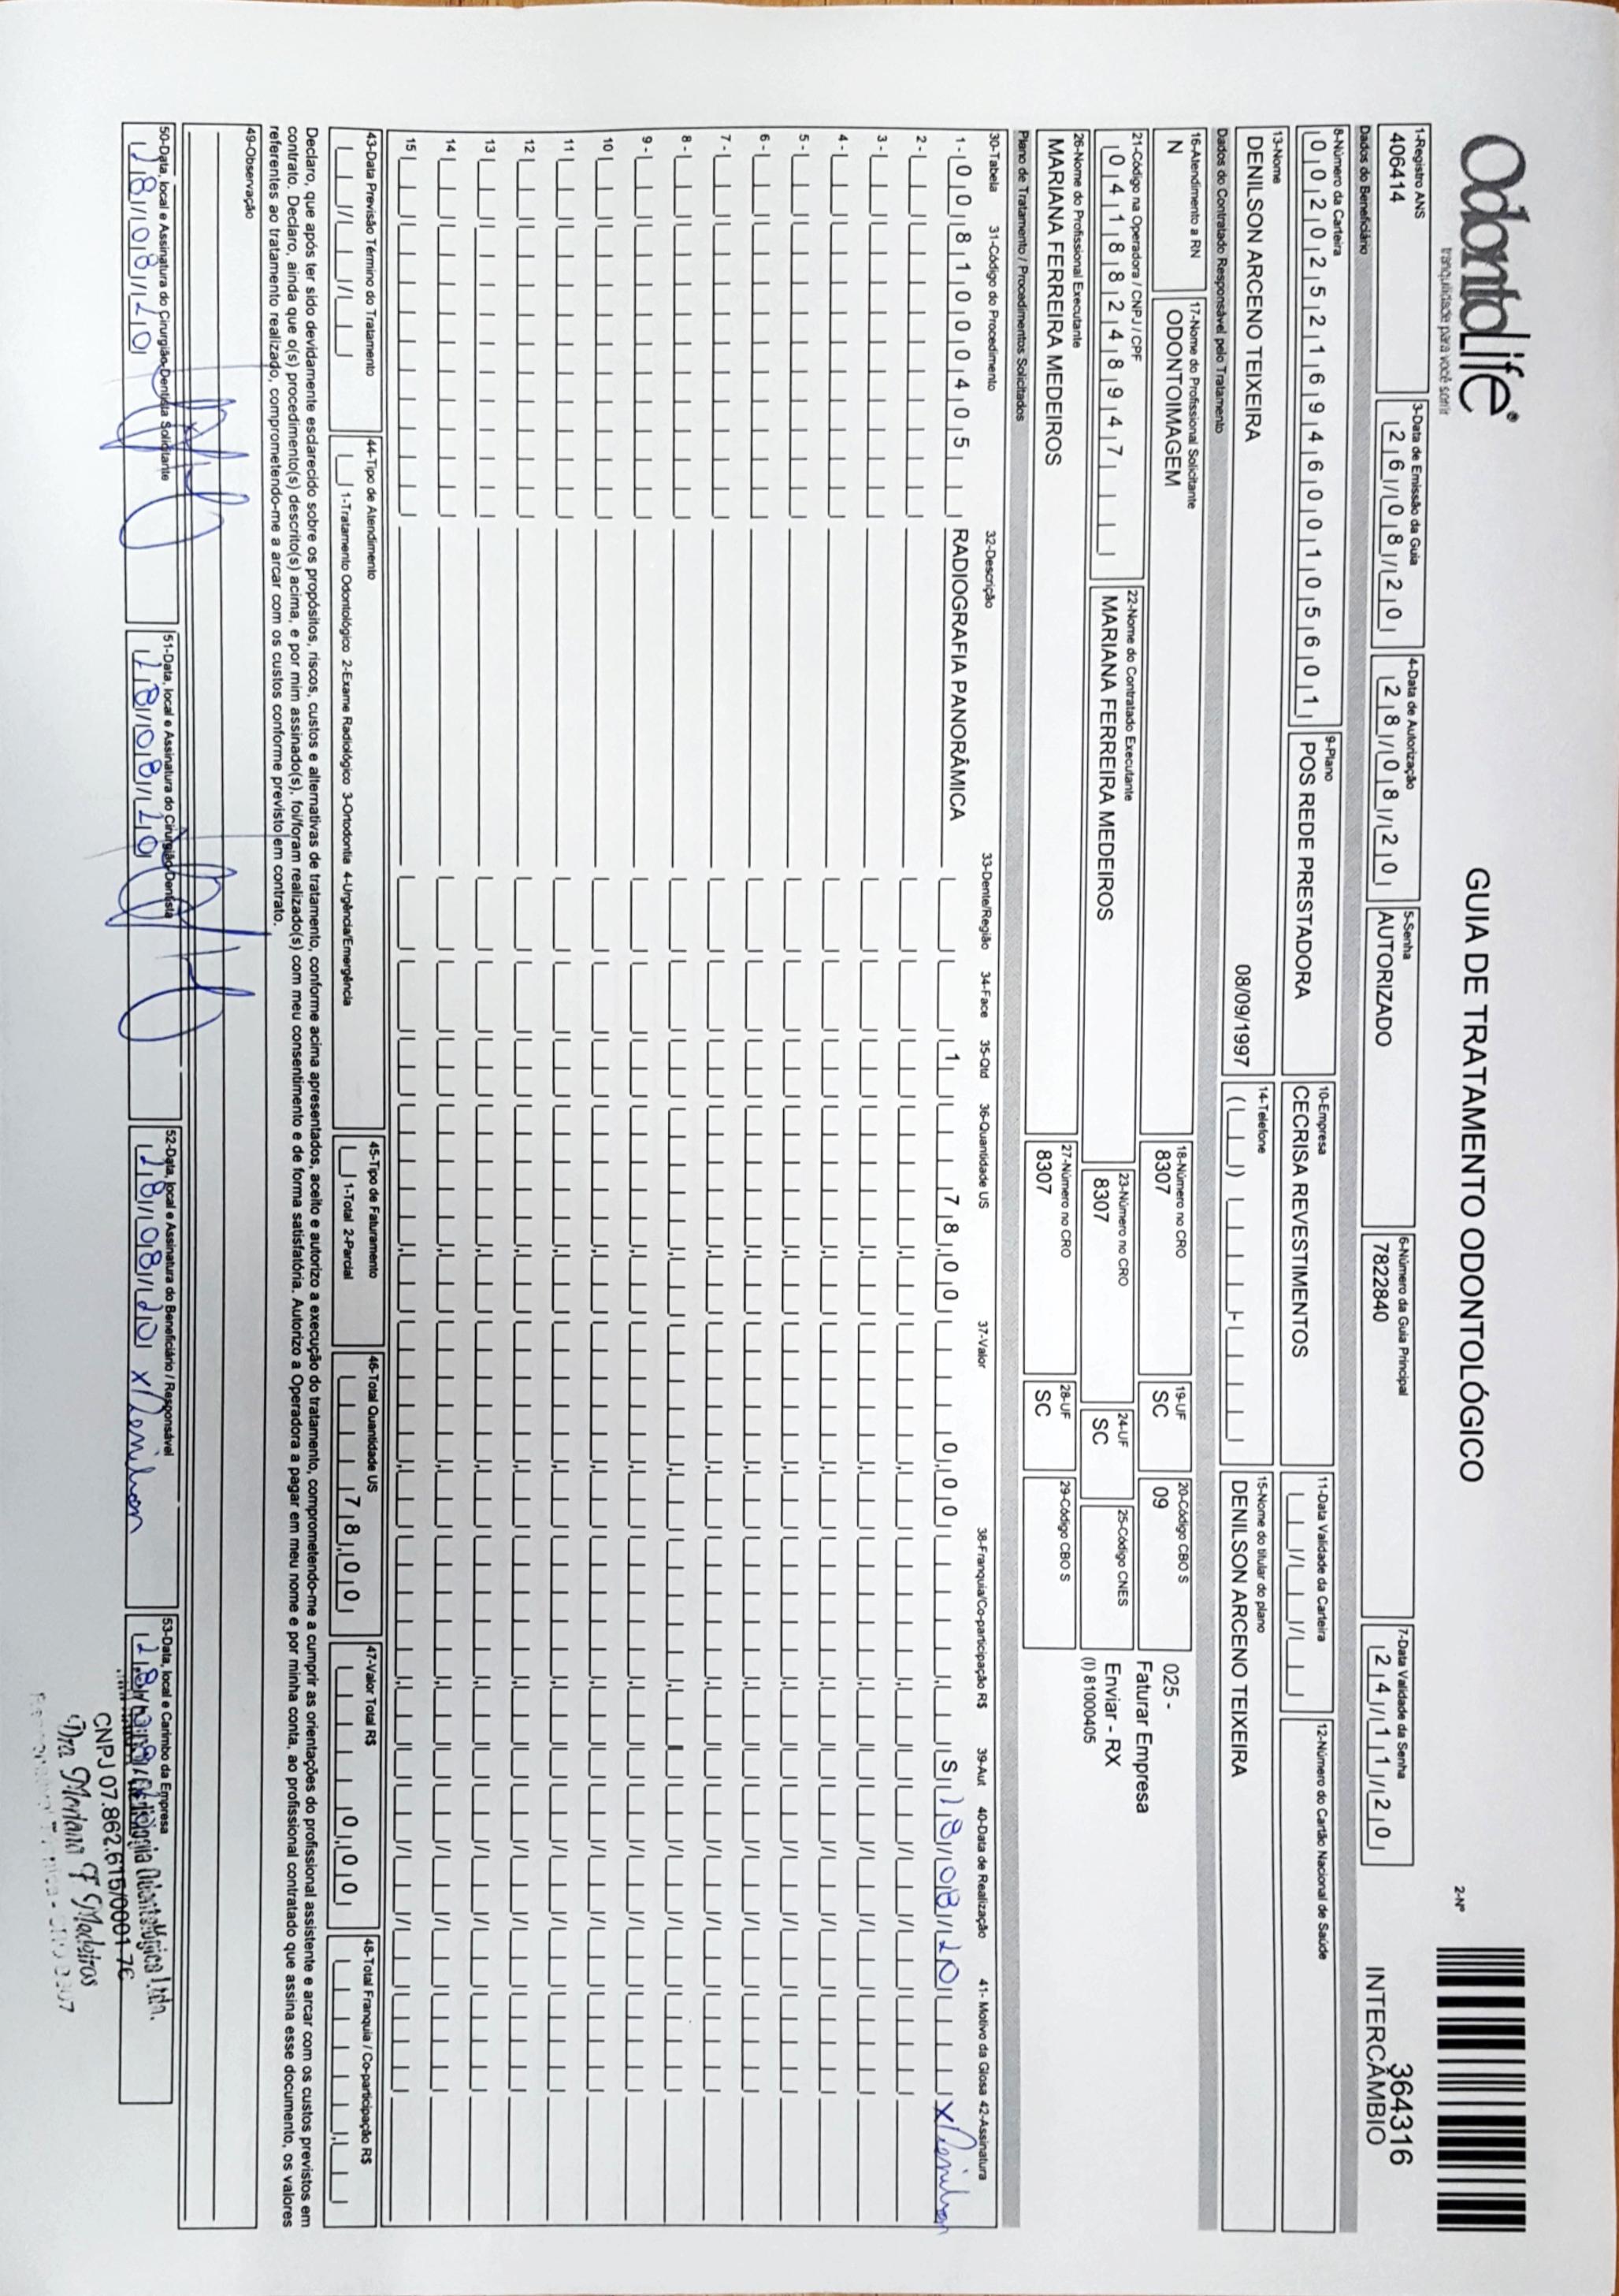 OdontoLife®
tranquilidade para você sorrir
GUIA DE TRATAMENTO ODONTOLÓGICO
2-Nº
364316
INTERCÂMBIO
1-Registro ANS
406414
3-Data de Emissão da Guia
26/08/20
4-Data de Autorização
28/08/20
5-Senha
AUTORIZADO
6-Número da Guia Principal
7822840
7-Data Validade da Senha
24/11/20
Dados do Beneficiário
8-Número da Carteira
00202521694600105601
9-Plano
POS REDE PRESTADORA
10-Empresa
CECRISA REVESTIMENTOS
11-Data Validade da Carteira
12-Número do Cartão Nacional de Saúde
13-Nome
DENILSON ARCENO TEIXEIRA
08/09/1997
14-Telefone
15-Nome do titular do plano
DENILSON ARCENO TEIXEIRA
Dados do Contratado Responsável pelo Tratamento
16-Atendimento a RN
N
17-Nome do Profissional Solicitante
ODONTOIMAGEM
18-Número no CRO
8307
19-UF
SC
20-Código CBO S
09
025 -
Faturar Empresa
Enviar - RX
(I) 81000405
21-Código na Operadora / CNPJ / CPF
04188248947
22-Nome do Contratado Executante
MARIANA FERREIRA MEDEIROS
23-Número no CRO
8307
24-UF
SC
25-Código CNES
26-Nome do Profissional Executante
MARIANA FERREIRA MEDEIROS
27-Número no CRO
8307
28-UF
SC
29-Código CBO S
Plano de Tratamento / Procedimentos Solicitados
30-Tabela 31-Código do Procedimento 32-Descrição 33-Dente/Região 34-Face 35-Qtd 36-Quantidade US 37-Valor 38-Franquia/Co-participação R$ 39-Aut 40-Data de Realização 41- Motivo da Glosa 42-Assinatura
1- 00 81000405 RADIOGRAFIA PANORÂMICA 1 78,00 0,00 S 28/08/20 x Denilson
2 -
3 -
4 -
5 -
6 -
7 -
8 -
9 -
10
11
12
13
14
15
43-Data Previsão Término do Tratamento
44-Tipo de Atendimento
1-Tratamento Odontológico 2-Exame Radiológico 3-Ortodontia 4-Urgência/Emergência
45-Tipo de Faturamento
1-Total 2-Parcial
46-Total Quantidade US
78,00
47-Valor Total R$
0,00
48-Total Franquia / Co-participação R$
Declaro, que após ter sido devidamente esclarecido sobre os propósitos, riscos, custos e alternativas de tratamento, conforme acima apresentados, aceito e autorizo a execução do tratamento, comprometendo-me a cumprir as orientações do profissional assistente e arcar com os custos previstos em
contrato. Declaro, ainda que o(s) procedimento(s) descrito(s) acima, e por mim assinado(s), foi/foram realizado(s) com meu consentimento e de forma satisfatória. Autorizo a Operadora a pagar em meu nome e por minha conta, ao profissional contratado que assina esse documento, os valores
referentes ao tratamento realizado, comprometendo-me a arcar com os custos conforme previsto em contrato.
49-Observação
50-Data, local e Assinatura do Cirurgião-Dentista Solicitante
28/08/20
51-Data, local e Assinatura do Cirurgião-Dentista
28/08/20
52-Data, local e Assinatura do Beneficiário / Responsável
28/08/20 x Denilson
53-Data, local e Carimbo da Empresa
28/08/20
Radiologia Odontológica Ltda.
CNPJ 07.862.615/0001-76
Dra Mariana F Medeiros